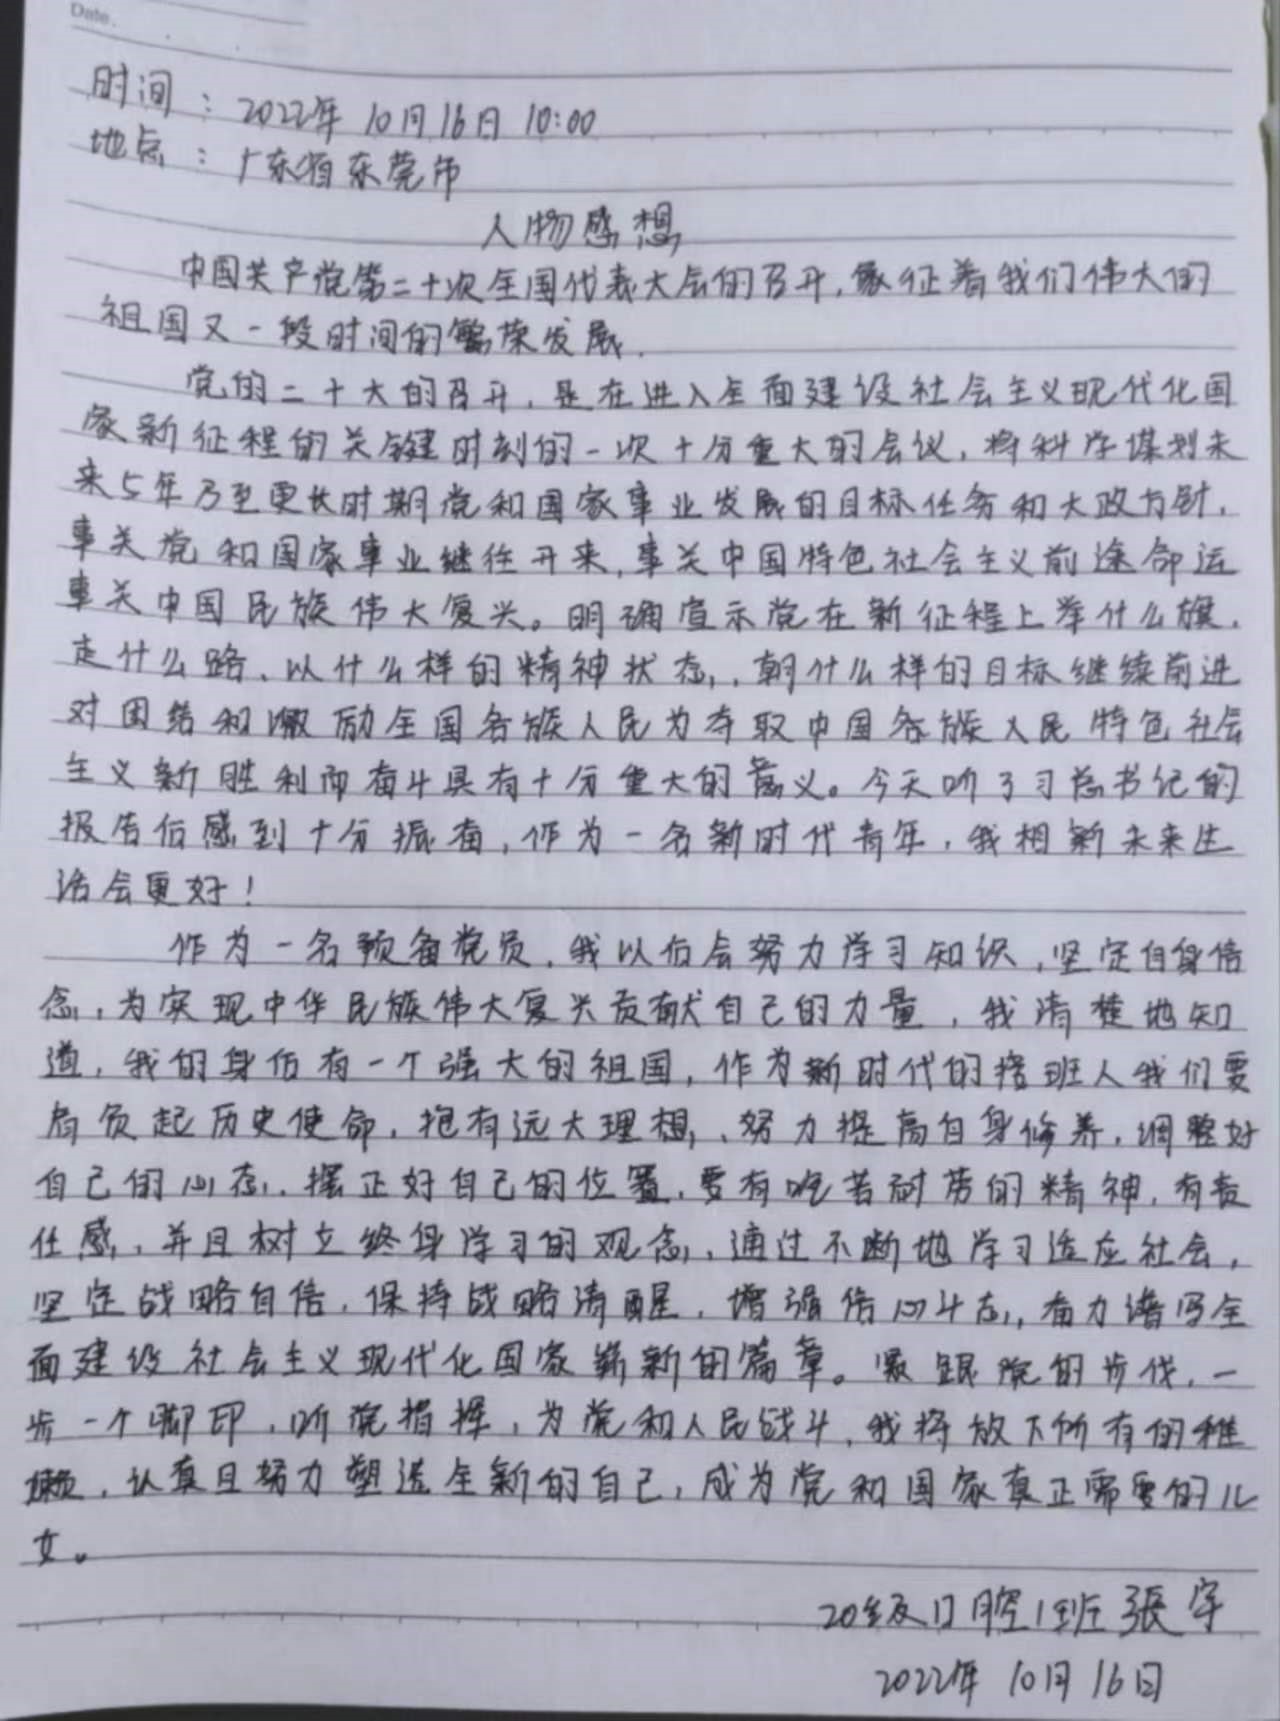 Date.
时间：2022年10月16日 10:00
地点：广东省东莞市
人物感想
中国共产党第二十次全国代表大会的召开，象征着我们伟大的
祖国又一段时间的繁荣发展.
党的二十大的召开，是在进入全面建设社会主义现代化国
家新征程的关键时刻的一次十分重大的会议，将科学谋划未
来5年乃至更长时期党和国家事业发展的目标任务和大政方针，
事关党和国家事业继往开来，事关中国特色社会主义前途命运
事关中国民族伟大复兴。明确宣示党在新征程上举什么旗，
走什么路、以什么样的精神状态，朝什么样的目标继续前进
对团结和激励全国各族人民为夺取中国各族人民特色社会
主义新胜利而奋斗具有十分重大的意义。今天听了习总书记的
报告后感到十分振奋，作为一名新时代青年，我相新未来生
活会更好！
作为一名预备党员，我以后会努力学习知识，坚定自身信
念，为实现中华民族伟大复兴贡献自己的力量，我清楚地知
道，我的身后有一个强大的祖国，作为新时代的接班人我们要
肩负起历史使命，抱有远大理想，努力提高自身修养，调整好
自己的心态，摆正好自己的位置，要有吃苦耐劳的精神，有责
任感，并且树立终身学习的观念，通过不断地学习适应社会，
坚定战略自信，保持战略清醒，增强信心斗志，奋力谱写全
面建设社会主义现代化国家崭新的篇章。紧跟党的步伐，一
步一个脚印，听党指挥，为党和人民战斗，我将放下所有的稚
懒，认真且努力塑造全新的自己，成为党和国家真正需要的儿
女。
20级口腔1班 張宇
2022年 10月 16日